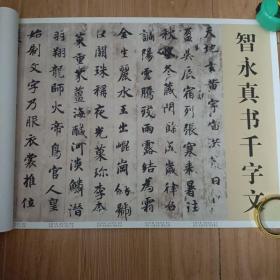 智永真书千字文
天地玄黄宇宙洪荒日月
盈昃辰宿列張寒來暑往
秋收冬藏閏餘成歲律呂
調陽雲騰致雨露結為霜
金生麗水玉出崑崗劍號
巨闕珠稱夜光菓珍李柰
菜重芥薑海醎河淡鱗潛
羽翔龍師火帝鳥官人皇
始制文字乃服衣裳推位